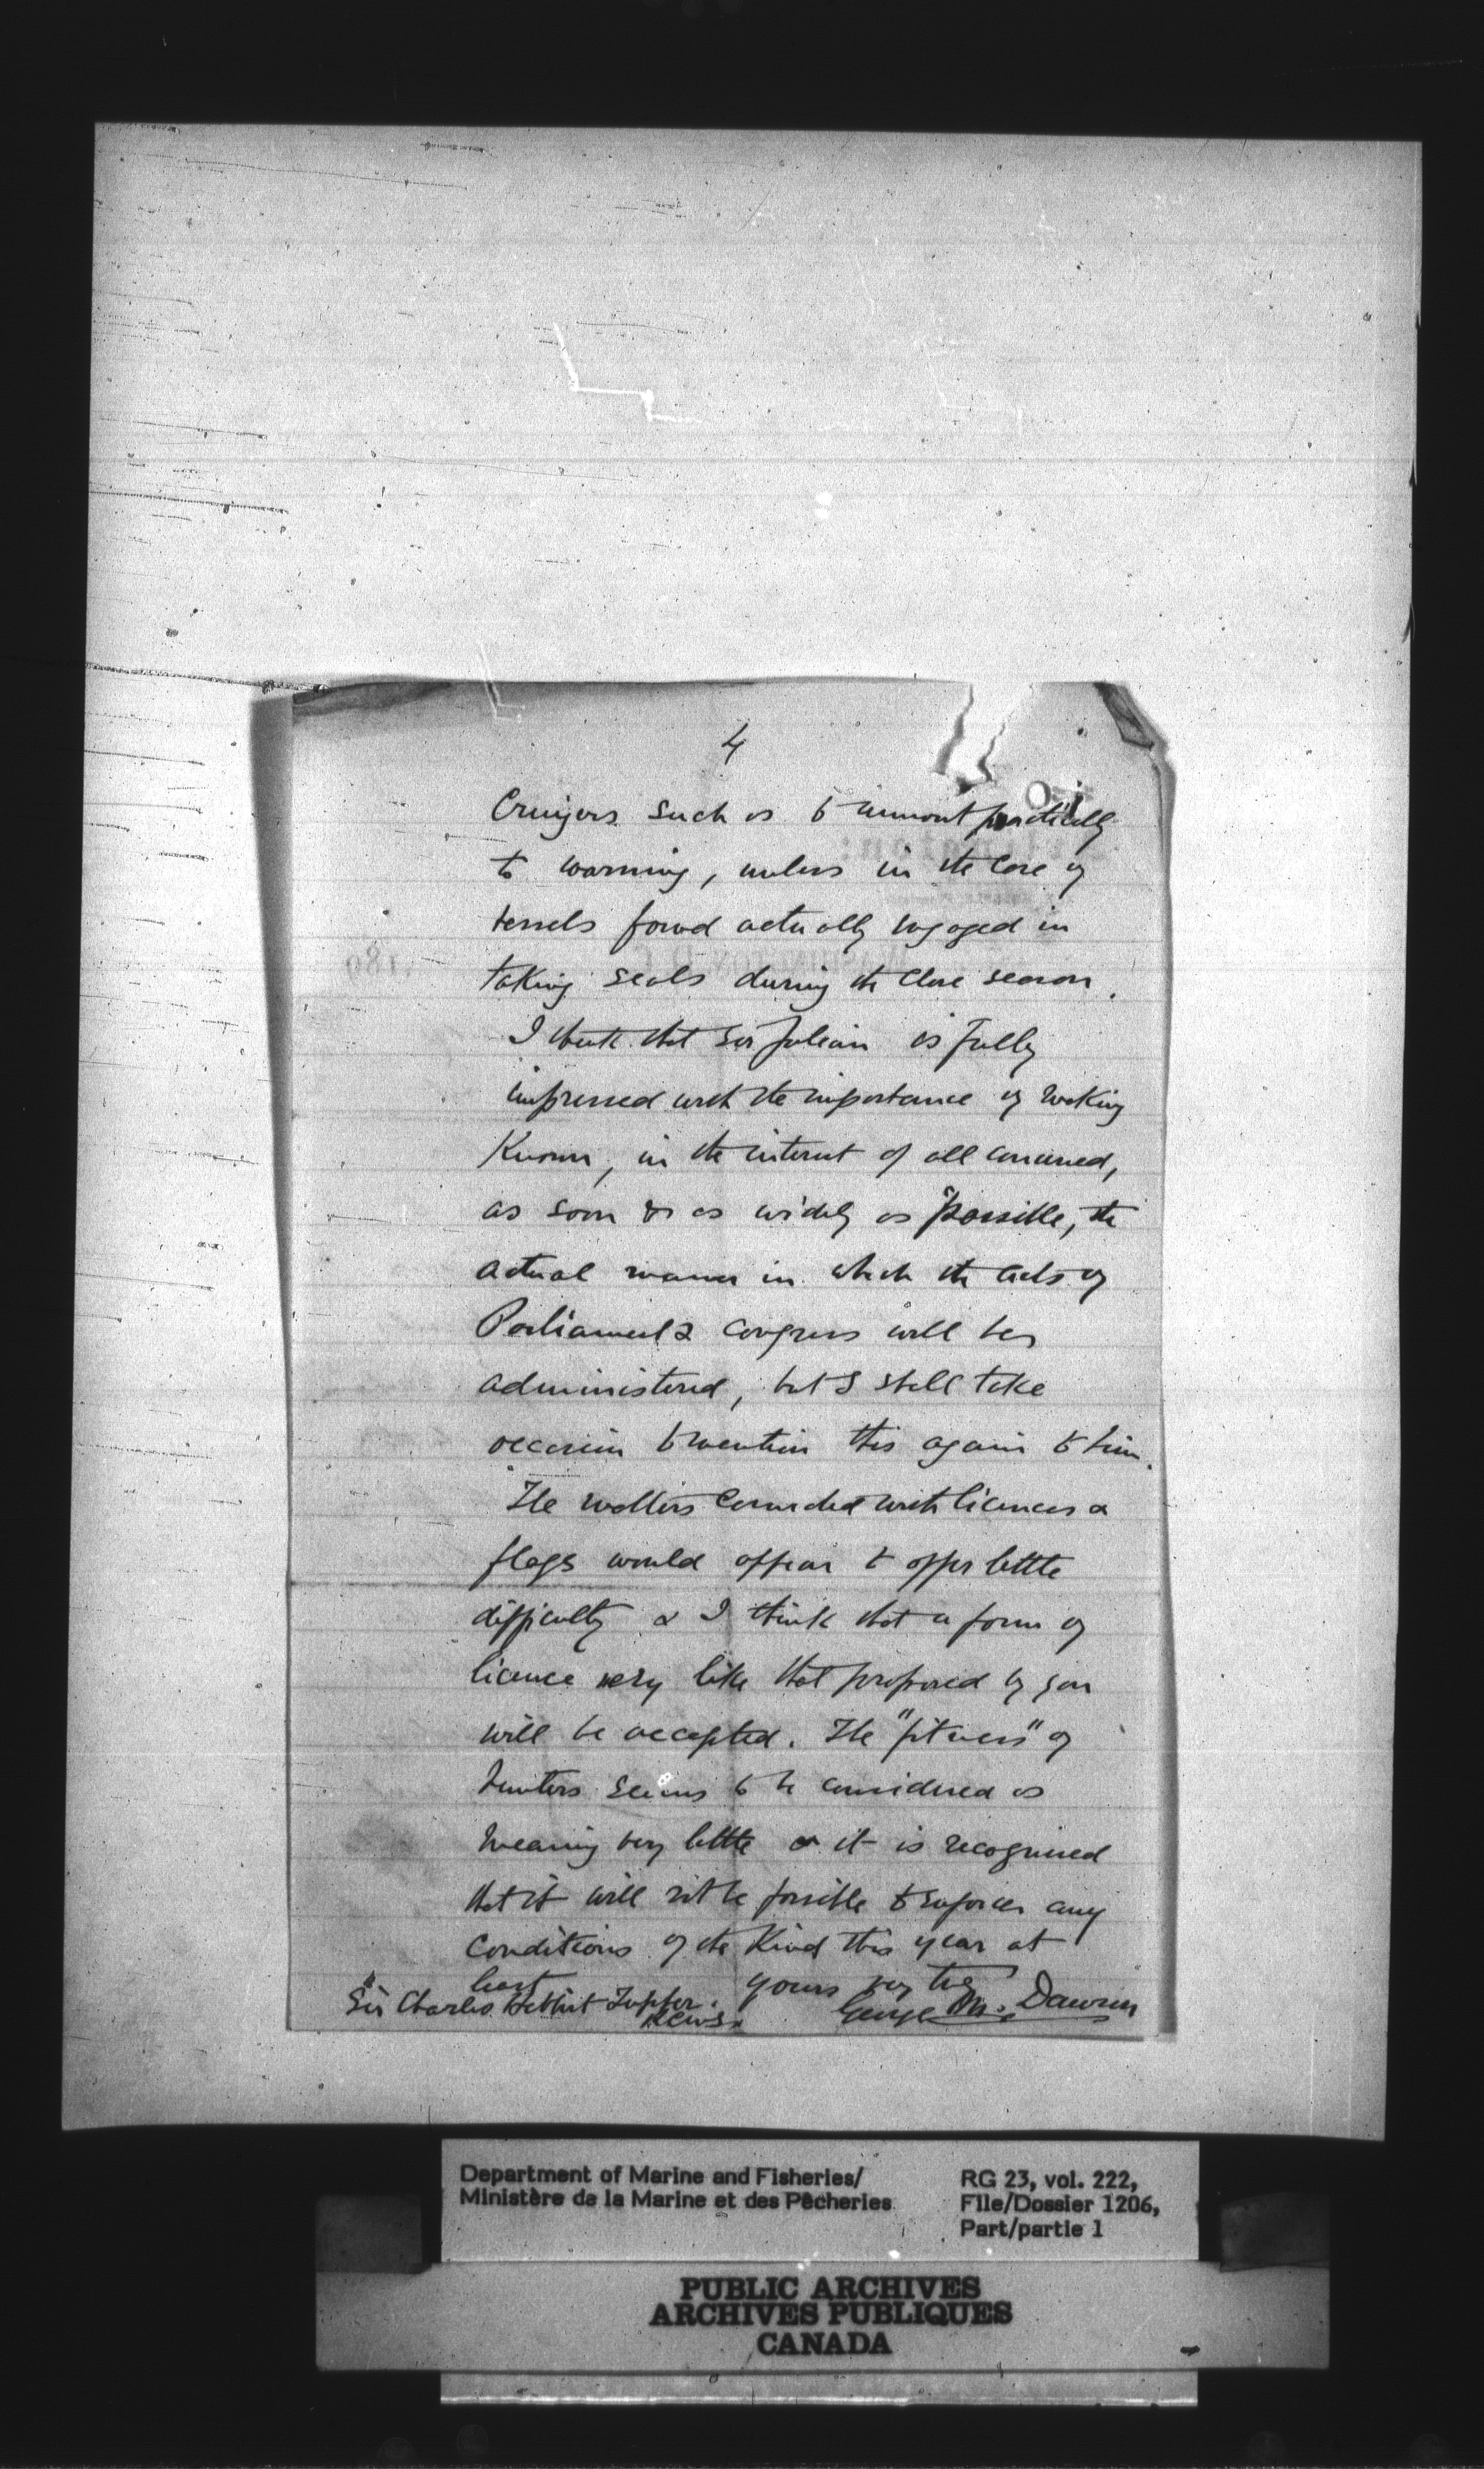 4
Cruizers such as to amount practically
to warning, unless in the case of
vessels found actually engaged in
taking seals during the close season.
I think that Sir Julian is fully
impressed with the importance of making
Known, in the interest of all concerned,
as soon & as widely as possible, the
actual manner in which the acts of
Parliament & Congress will be
administered, but I shall take
occasion to mention this again to him.
The matters connected with licences &
flags would appear to offer little
difficulty & I think that a form of
licence very like that proposed by you
will be accepted. The "fitness" of
hunters seems to be considered as
meaning very little & it is recognised
that it will not be possible to enforce any
conditions of the Kind this year at
least
yours very truly
George M. Dawson
Sir Charles Hibbert Tupper.
Department of Marine and Fisheries/
Ministère de la Marine et des Pêcheries
RG 23, vol. 222,
File/Dossier 1206,
Part/partie 1
PUBLIC ARCHIVES
ARCHIVES PUBLIQUES
CANADA